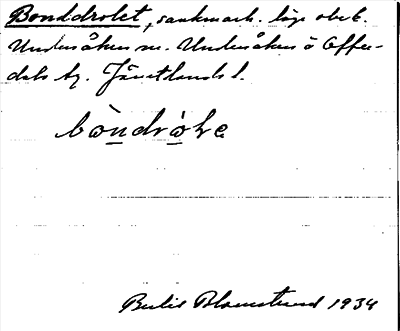 Bonddrolet, sankmark. läge obek.
Undersåkers sn. Undersåkers o Offer-
dals tg. Jämtlands l.
bòndròḷe
Bertil Blomstrand 1934